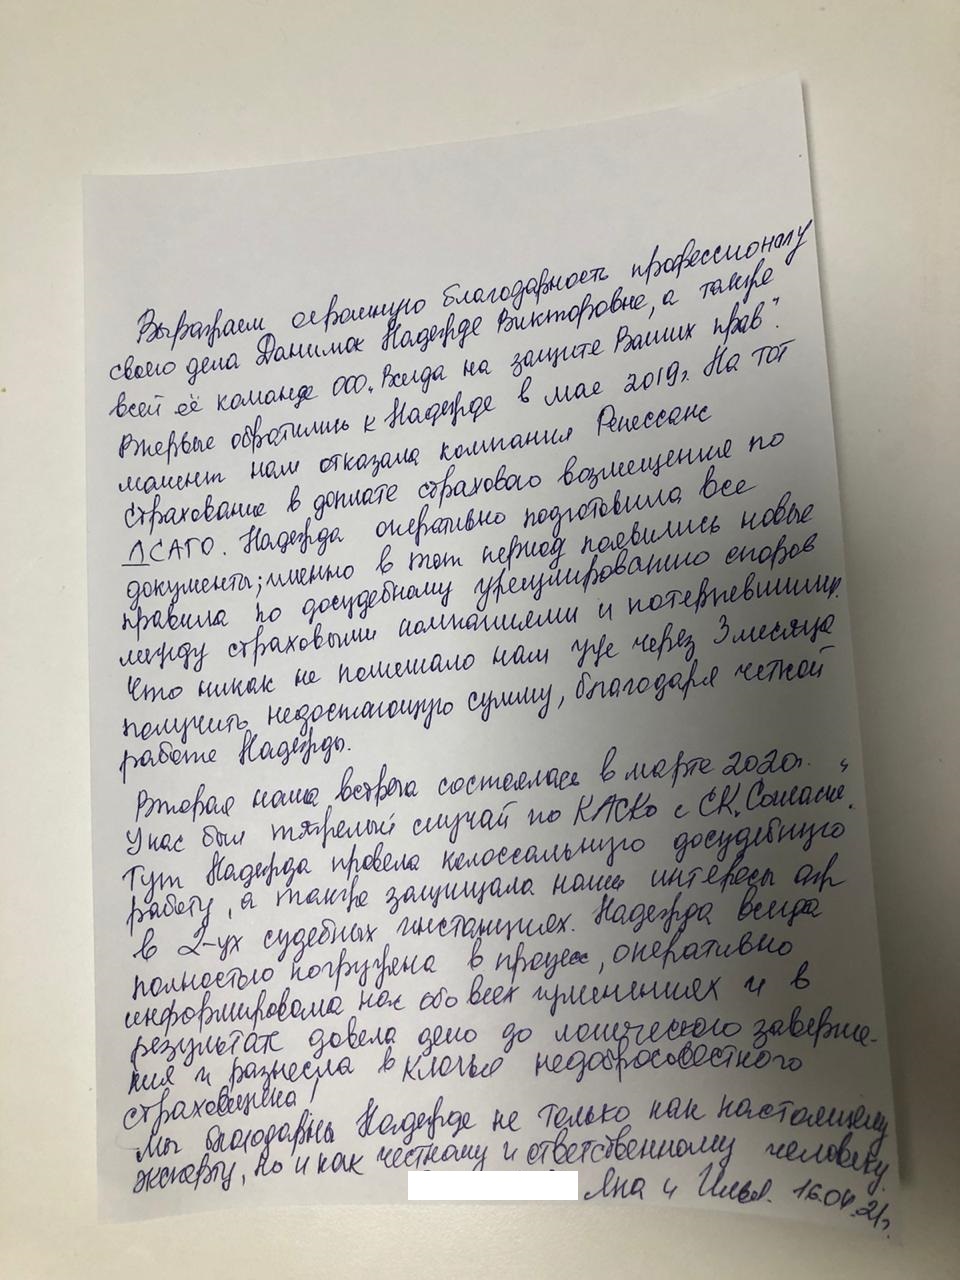 Выражаем огромную благодарность профессионалу
своего дела Данимак Надежде Викторовне, а также
всей её команде ООО „Всегда на защите Ваших прав".
Впервые обратились к Надежде в мае 2019г. На тот
момент нам отказала компания Ренессанс
страхование в доплате страхового возмещения по
ДСАГО. Надежда оперативно подготовила все
документы; именно в тот период появились новые
правила по досудебному урегулированию споров
между страховыми компаниями и потерпевшими.
Что никак не помешало нам уже через 3 месяца
получить недостающую сумму, благодаря четкой
работе Надежды.
Вторая наша встреча состоялась в марте 2020г.
У нас был тяжелый случай по КАСКО с СК „Согласие".
Тут Надежда провела колоссальную досудебную
работу, а также защищала наши интересы аж
в 2-ух судебных инстанциях. Надежда всегда
полностью погружена в процесс, оперативно
информировала нас обо всех изменениях и в
результате довела дело до логического заверше-
ния и разнесла в клочья недобросовестного
страховщика!
Мы благодарны Надежде не только как настоящему
эксперту, но и как честному и ответственному человеку.
Яна и Илья. 16.04.21г.